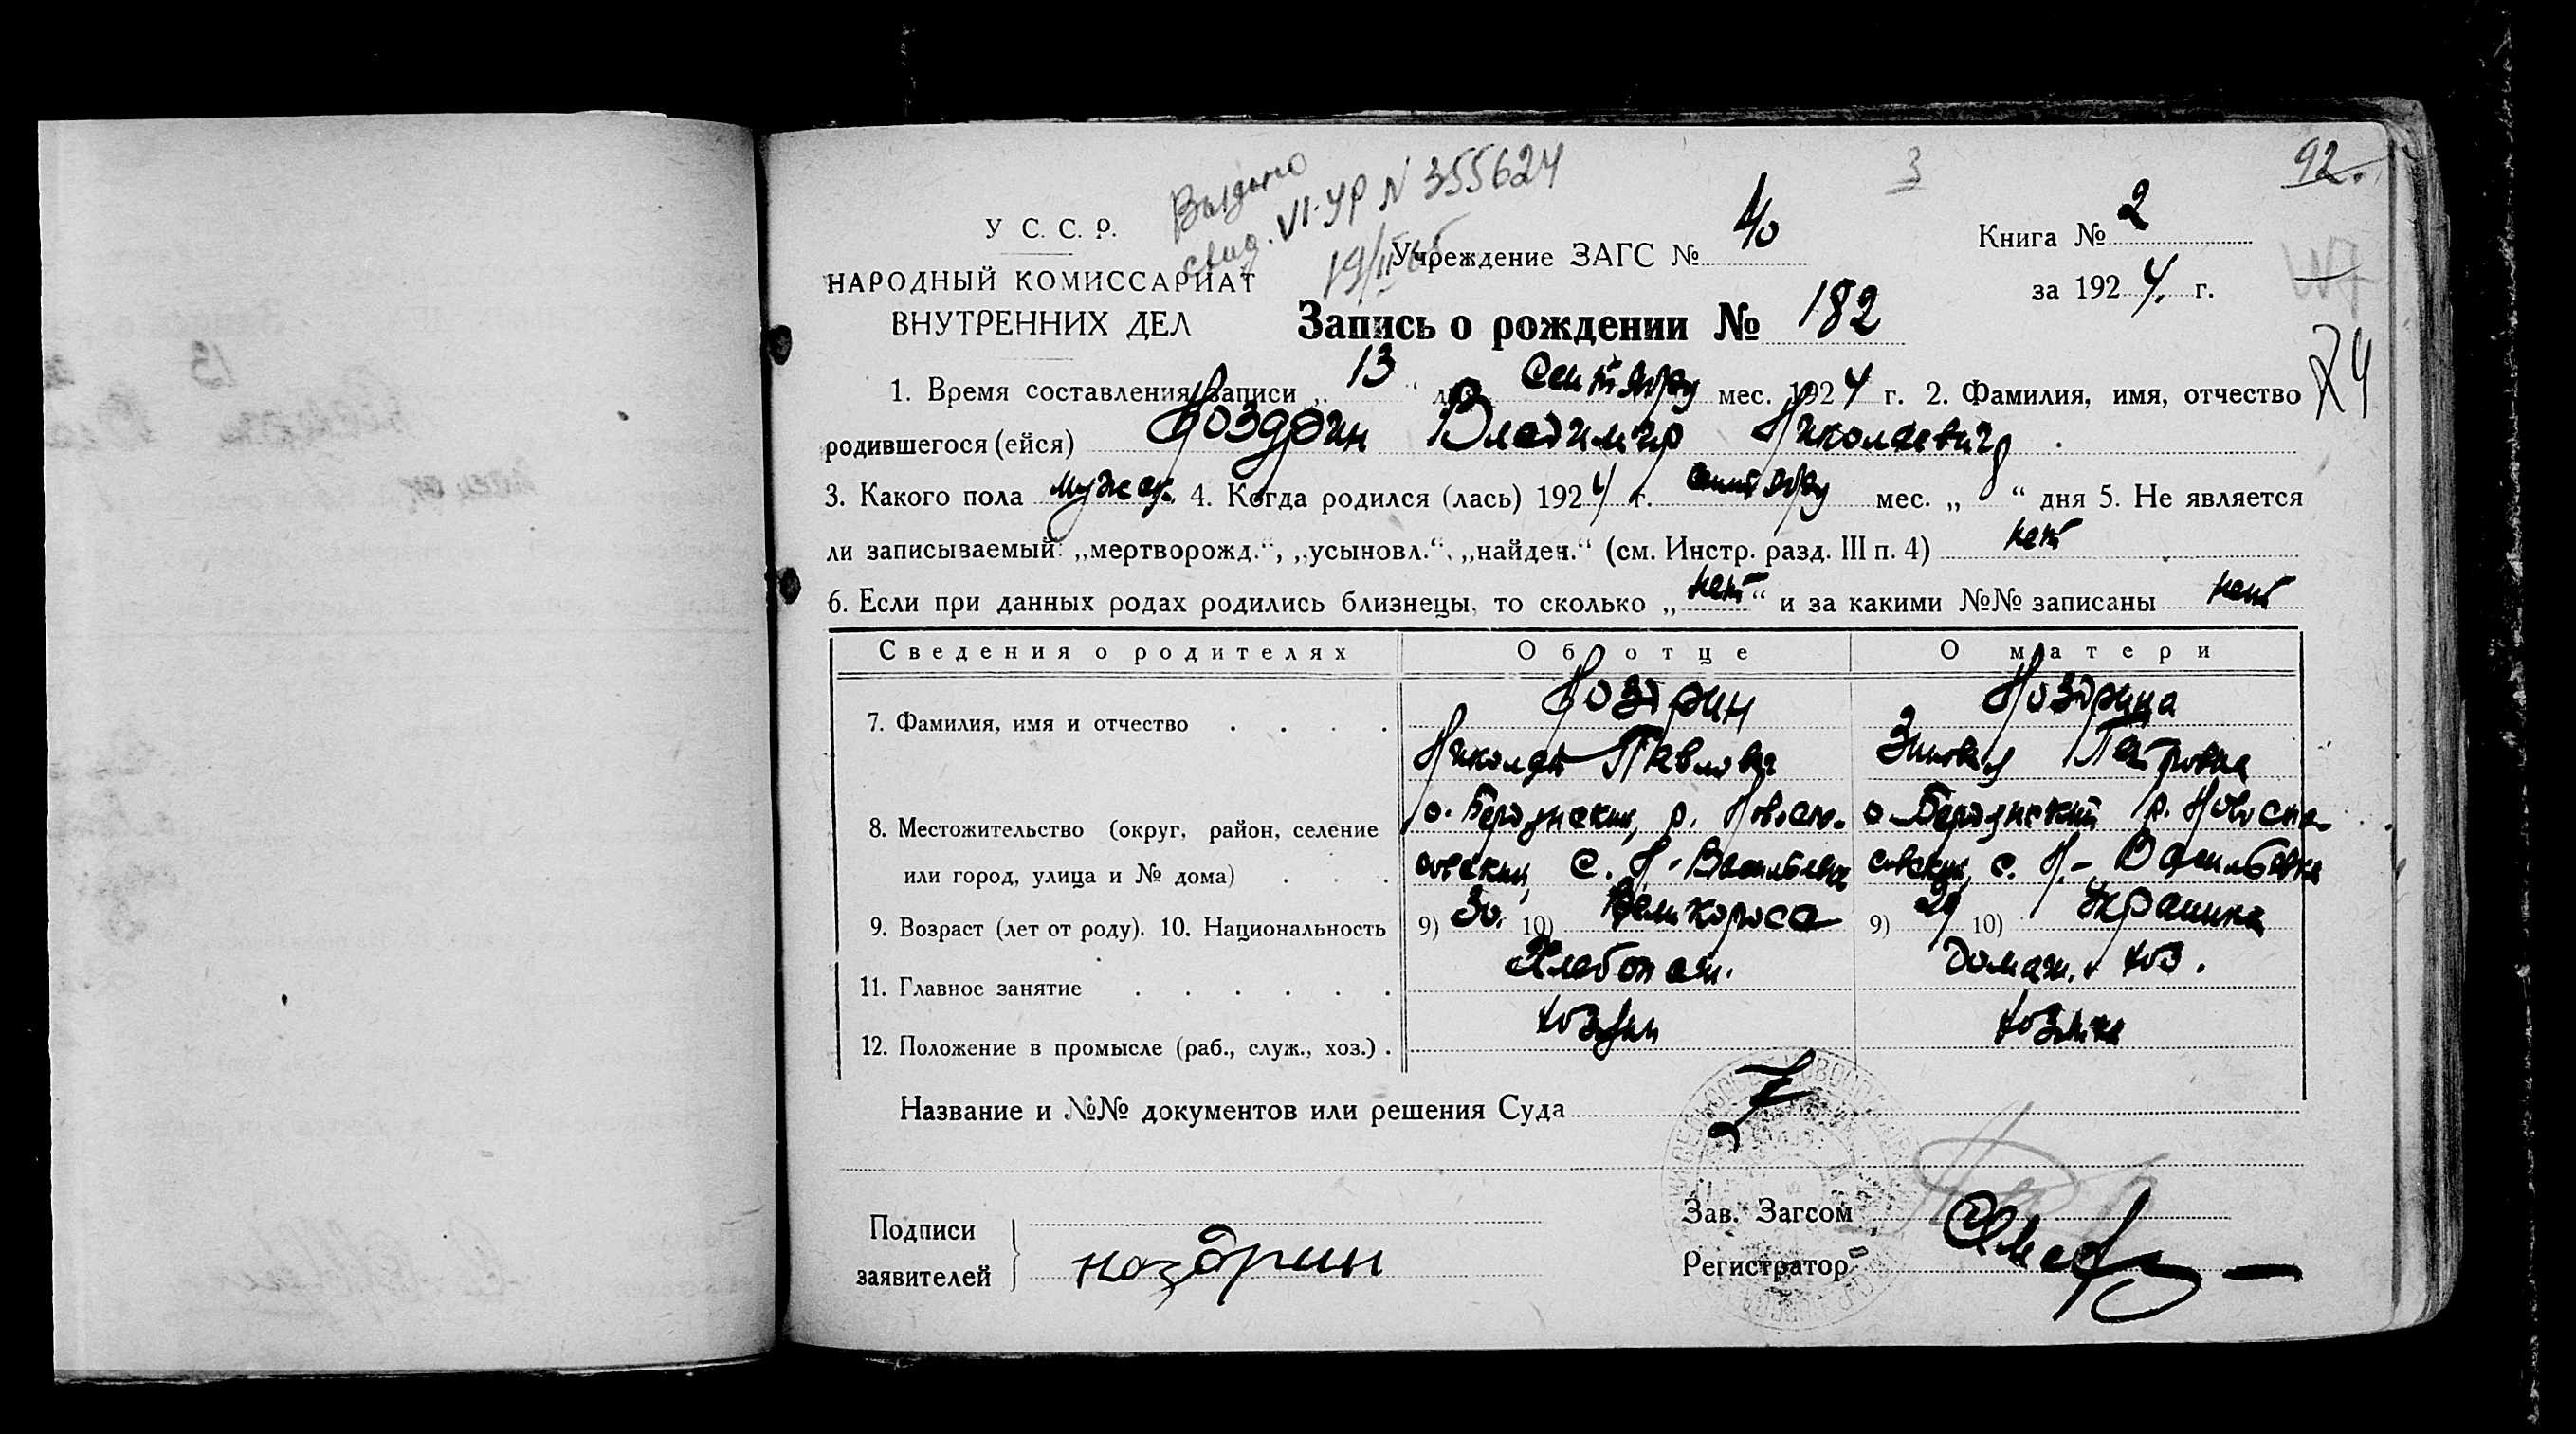 92.
3
Выдано
свид. VI-УР N 355624
19/II
У С. С. Р.
НАРОДНЫЙ КОМИССАРИАТ
ВНУТРЕННИХ ДЕЛ
Учреждение ЗАГС № 40
Книга № 2
за 1924. г.
Запись о рождении № 182
74
1. Время составления записи „ 13 “ дня сентября мес. 1924 г. 2. Фамилия, имя, отчество
родившегося (ейся) Ноздрин Владимир Николаевич
3. Какого пола мужск. 4. Когда родился (лась) 1924 г. сентября мес. „ 8 “ дня 5. Не является
ли записываемый: „мертворожд.“, „усыновл.“, „найден.“ (см. Инстр. разд. III п. 4) нет
6. Если при данных родах родились близнецы, то сколько „ нет “ и за какими №№ записаны нет
Сведения о родителях Об отце О матери
7. Фамилия, имя и отчество . . . . Ноздрин Ноздрина
Николай Павлович Зиновия Петровна
8. Местожительство (округ, район, селение о. Бердянский, р. Новоспа- о. Бердянский р. Новоспа-
или город, улица и № дома) . . . совский, с. Н-Васильевка совский, с. Н.-Васильевка
9. Возраст (лет от роду). 10. Национальность 9) 30. 10) Великоросс 9) 29 10) Украинка
11. Главное занятие . . . . . . Хлебопаш. Домаш. хоз.
12. Положение в промысле (раб., служ., хоз.) . хозяин хозяйка
Название и №№ документов или решения Суда
Подписи
заявителей
ноздрин
Зав. Загсом
Регистратор